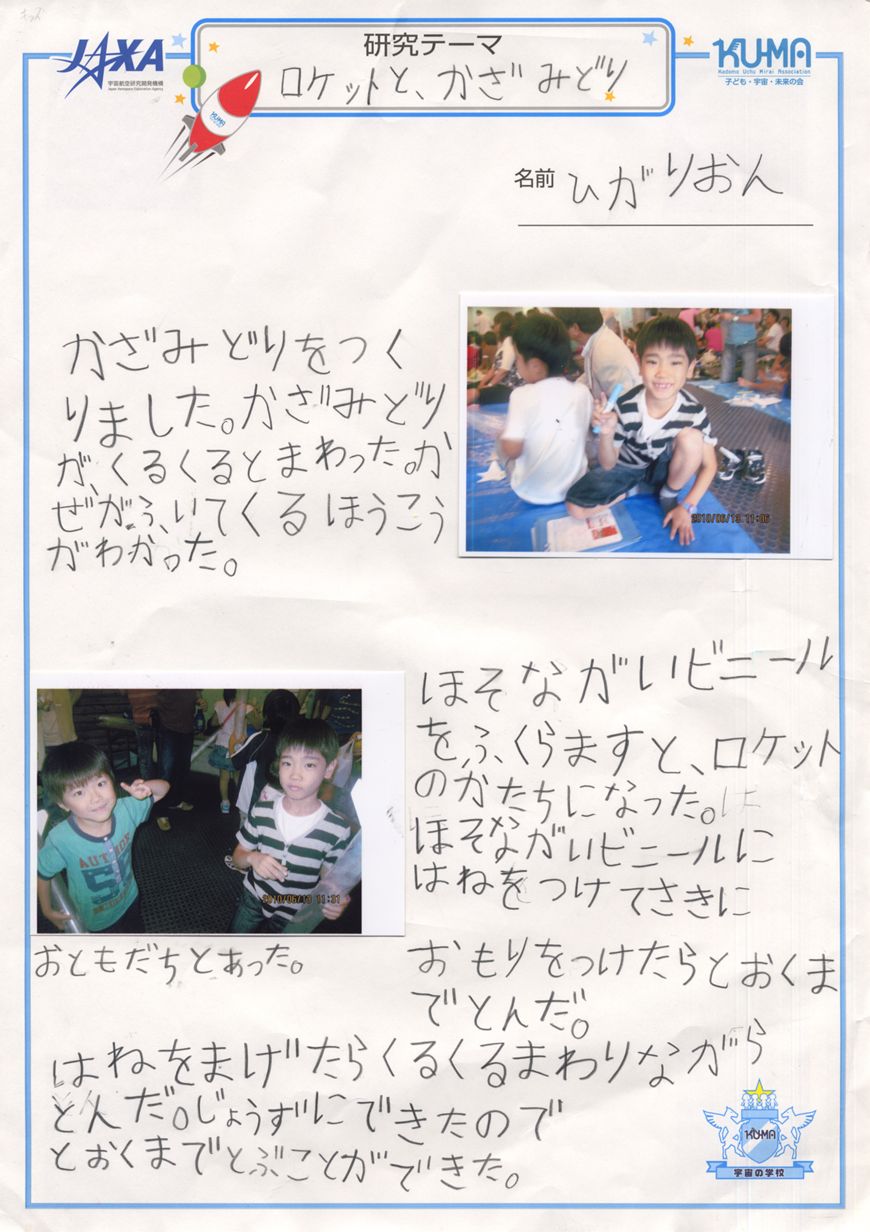 キッズ
JAXA
宇宙航空研究開発機構
Japan Aerospace Exploration Agency
研究テーマ
ロケットと、かざみどり
KU-MA
Kodomo Uchu Mirai Association
子ども・宇宙・未来の会
KU-MA
名前 ひがりおん
かざみどりをつく
りました。かざみどり
が、くるくるとまわった。か
ぜがふいてくるほうこう
がわかった。
2010/06/13 11:06
ほそながいビニール
をふくらますと、ロケット
のかたちになった。は
ほそながいビニールに
はねをつけてさきに
おもりをつけたらとおくま
でとんだ。
2010/06/13 11:31
おともだちとあった。
はねをまげたらくるくるまわりながら
とんだ。じょうずにできたので
とおくまでとぶことができた。
KU-MA
宇宙の学校